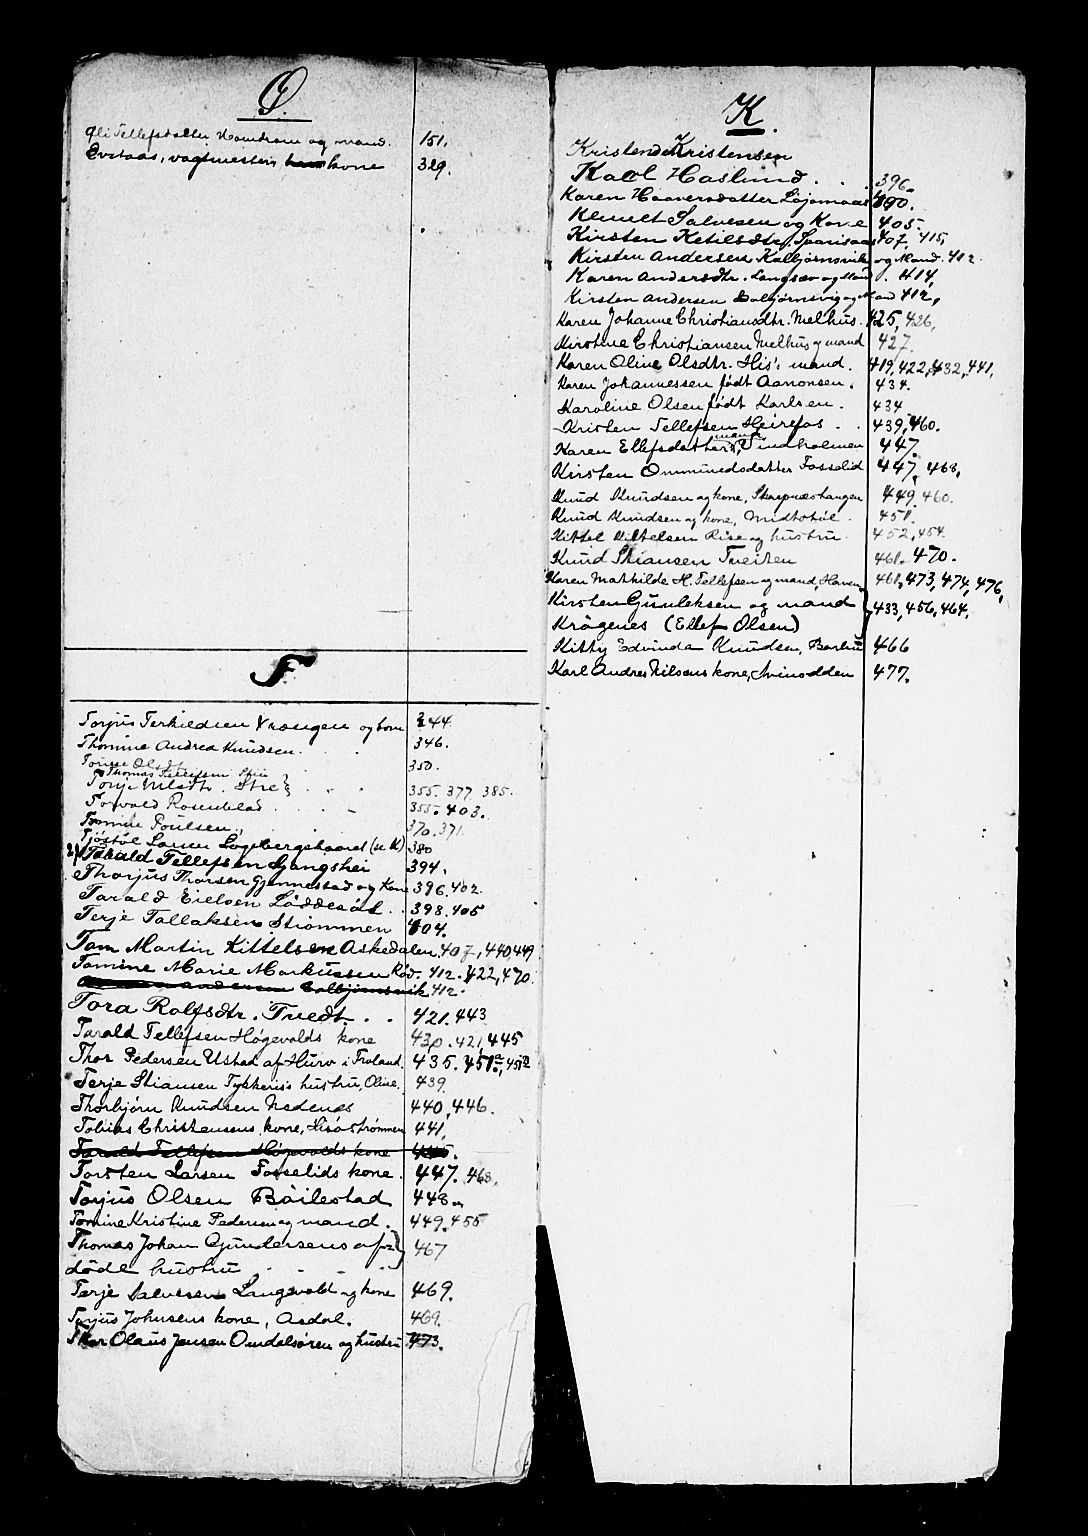 Ø.
Tellefsdatter og mand. 151.
Evstaas, vagtmesters kone 329.
T
Torjus Terkildsen Vrangen og born 344.
Thomine Andrea Knudsen. 346.
Tomine Olsdt. 350.
Thomas Tellefsen Strie
Torje Nilsdtr. Strie 355. 377. 385.
Torvald Rosenblad. 355. 403.
Tomine Poulsen. 370. 371.
Tjøstøl Larsen Løgebergshaaret (u K) 380
Tarald Tellefsen Gangshei 394.
Thorjus Thorsen Gjennestad og Kone 396. 402.
Tarald Eielsen Løddesøl. 398. 405
Terje Tallaksen Strømmen 404.
Tom Martin Kittelsen Askedalen, 407, 440, 449.
Tomine Marie Markussen Rød. 412. 422, 470.
Andersen Kalbjørnsvik 412.
Tora Rolfsdtr. Tvedt. 421. 443
Tarald Tellefsen Høgevolds kone 430. 421, 445
Thor Pedersen Ustad af Hurv i Froland. 435. 451a, 451a
Terje Stiansen Tykkeris's hustru, Oline. 439.
Thorbjørn Knudsen Nedenes 440, 446.
Tobias Christensens kone, Hisøstrømmen 441.
Tarald Tellefsen Høgevolds kone 445.
Torsten Larsen Fosselids kone. 447. 468.
Torjus Olsen Bøilestad 448.
Tomine Kristine Pedersen og mand. 449. 455
Thomas Johan Gundersens af= 467
døde hustru
Terje Salvesen Langevold og kone 469.
Torjus Johnsens kone, Asdal. 469.
Thor Olaus Jensen Omdalsøren og hustru 473.
K.
Kristen Kristensen
Karl Haslund 396.
Karen Haaversdatter Løjomaas 390.
Klemet Salvesen og Kone 405.
Kirsten Ketilsdtr. Sparisaas 407. 415,
Kirsten Andersen Kalbjørnsvik og Mand. 412.
Karen Andersdtr. Langsæv og Mand. 414,
Kirsten Andersen Kalbjørnsvig og Mand 412,
Karen Johanne Christiansdtr. Melhus. 425, 426,
Kirstine Christiansen Melhus og mand 427.
Karen Oline Olsdtr. His', mand. 419, 422, 432, 441,
Karen Johannessen født Aanonsen. 434.
Karoline Olsen født Karlsen. 434
Kristen Tellefsen Heirefos. 439, 460.
Karen Ellefsdatter, mand Vindholmen 447.
Kirsten Ommundsdatter Fosselid 447, 468,
Knud Knudsen og kone, Skarpnæstangen 449, 460.
Knud Knudsen og kone, Midtstøl. 451.
Kittel Kittelsen Rise og hustru. 452, 454.
Knud Stiansen Tveiten 461. 470.
Karen Mathilde H. Tellefsen og mand, Haven 461, 473, 474, 476,
Kirsten Gunleksen og mand 433, 456, 464.
Krøgenes (Ellef Olsen)
Kitty Edvinda Knudsen, Barbu 466
Karl Andres Nilsens kone, Svinodden 477.